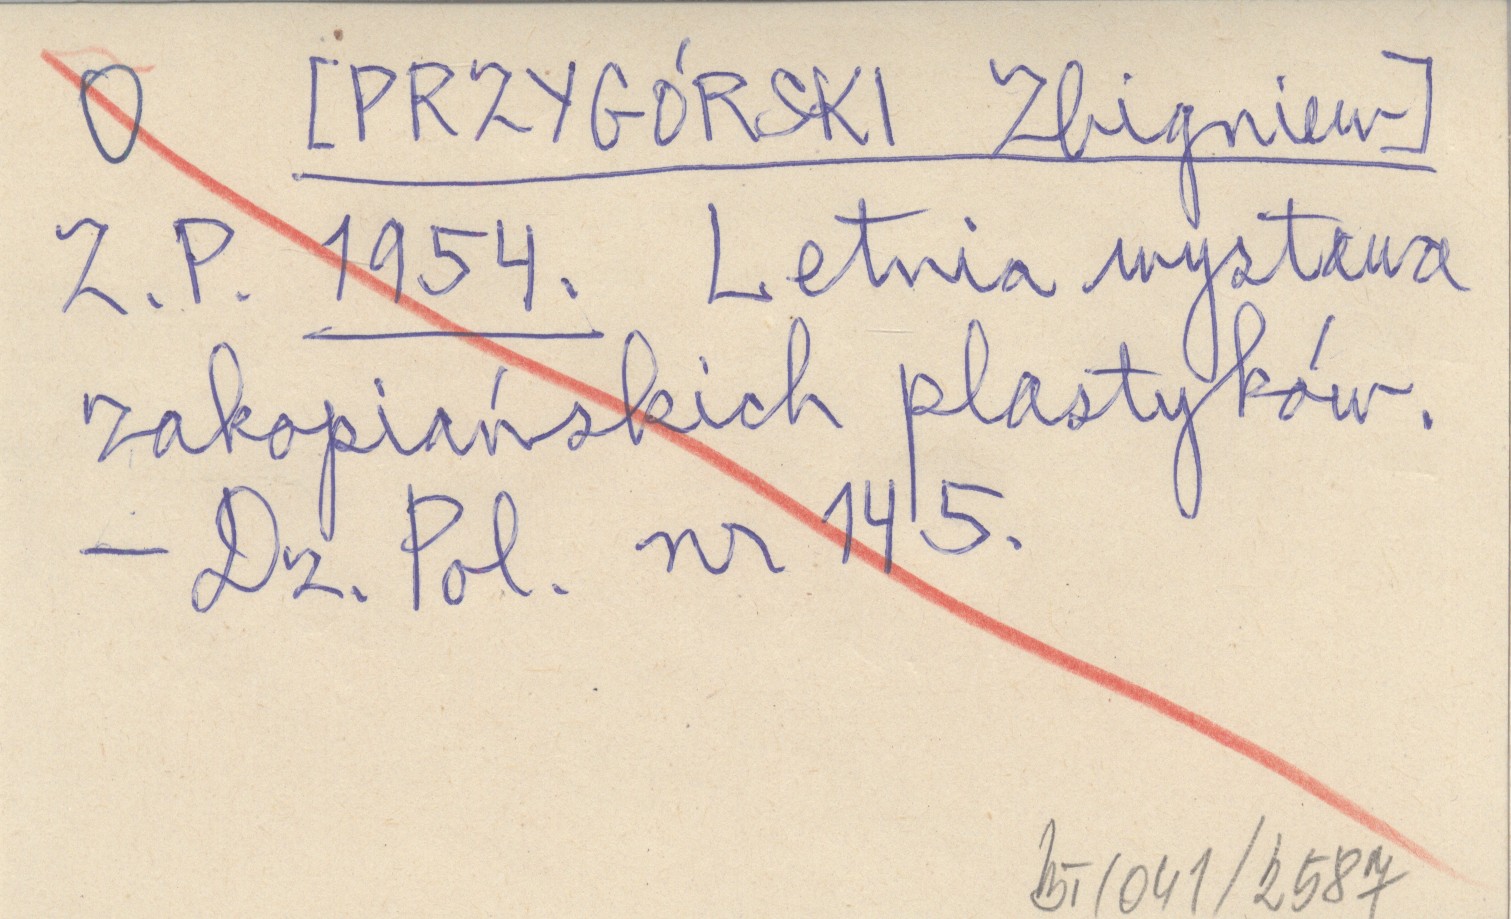 O [PRZYGÓRSKI Zbigniew]
Z.P. 1954. Letnia wystawa
zakopiańskich plastyków.
— Dz. Pol. nr 145.
/041/2587